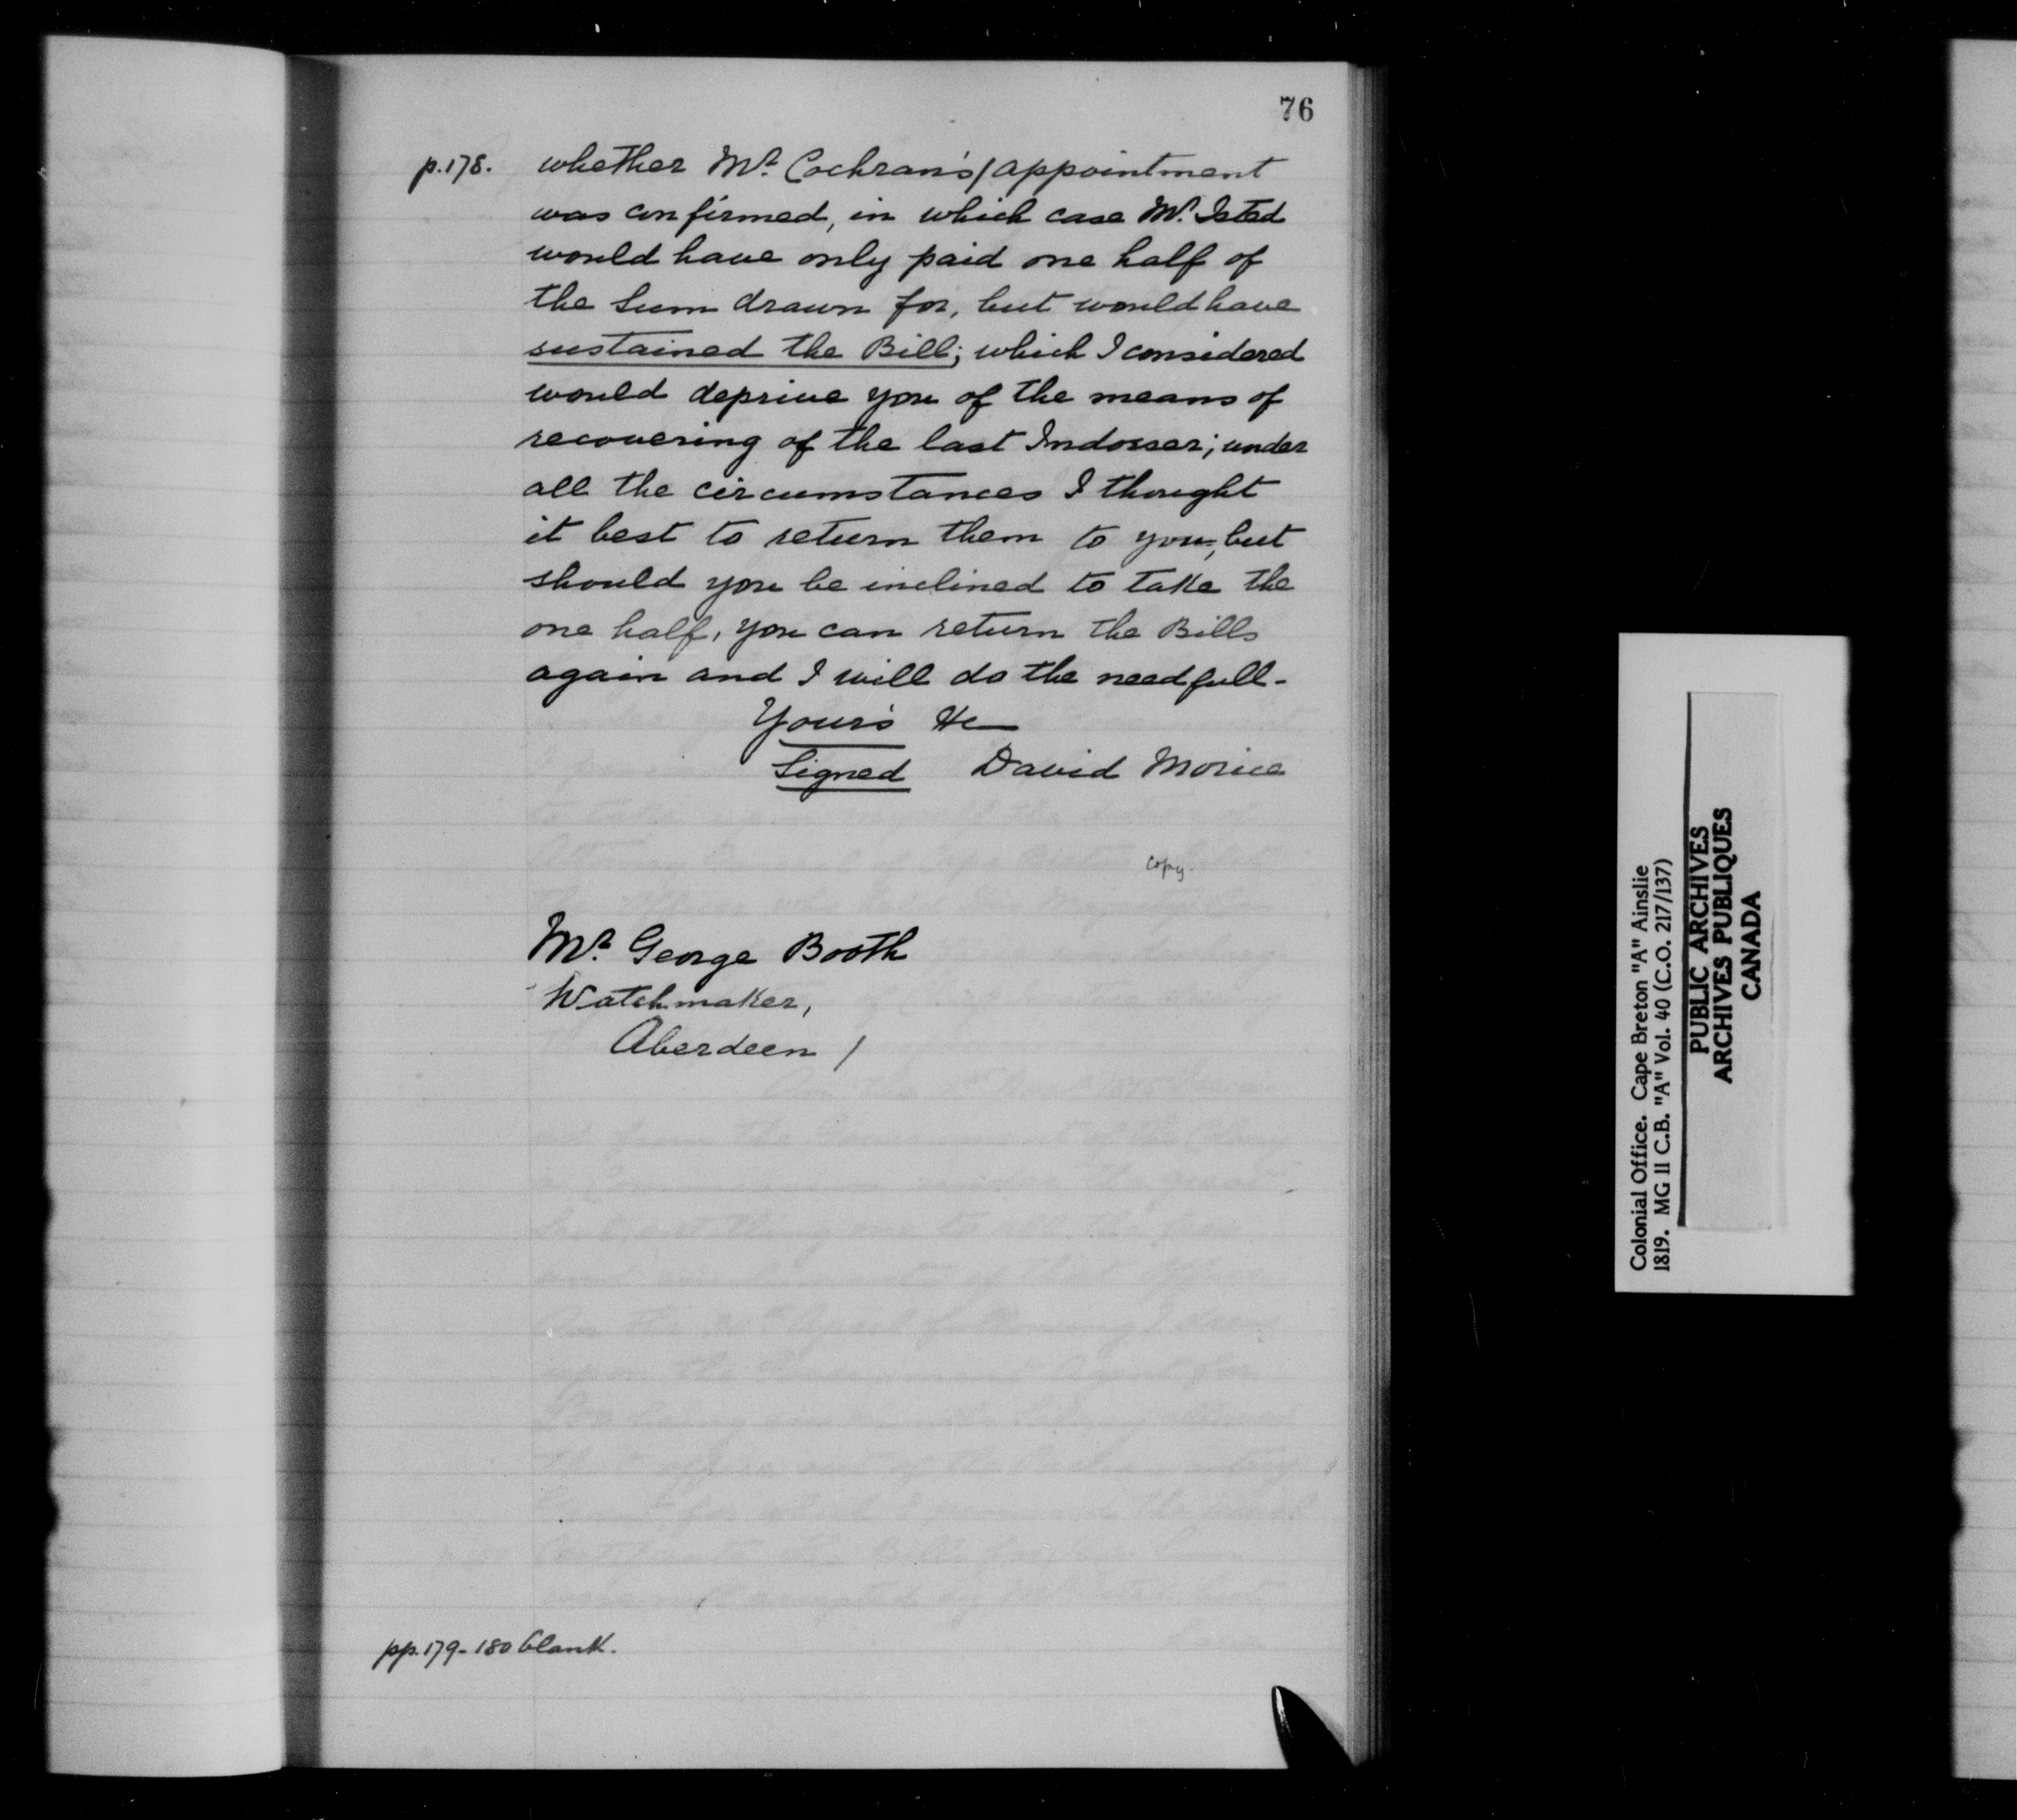 76
p.178. whether Mr. Cochran's/appointment
was confirmed, in which case Mr. Isted
would have only paid one half of
the Sum drawn for, but would have
sustained the Bill; which I considered
would deprive you of the means of
recovering of the last Indorser; under
all the circumstances I thought
it best to return them to you, but
should you be inclined to take the
one half, you can return the Bills
again and I will do the needfull-
Your's &c
Signed David Morice
copy.
Mr. George Booth
Watchmaker,
Aberdeen /
pp.179-180 blank.
Colonial Office. Cape Breton "A" Ainslie
1819. MG 11 C.B. "A" Vol. 40 (C.O. 217/137)
PUBLIC ARCHIVES
ARCHIVES PUBLIQUES
CANADA